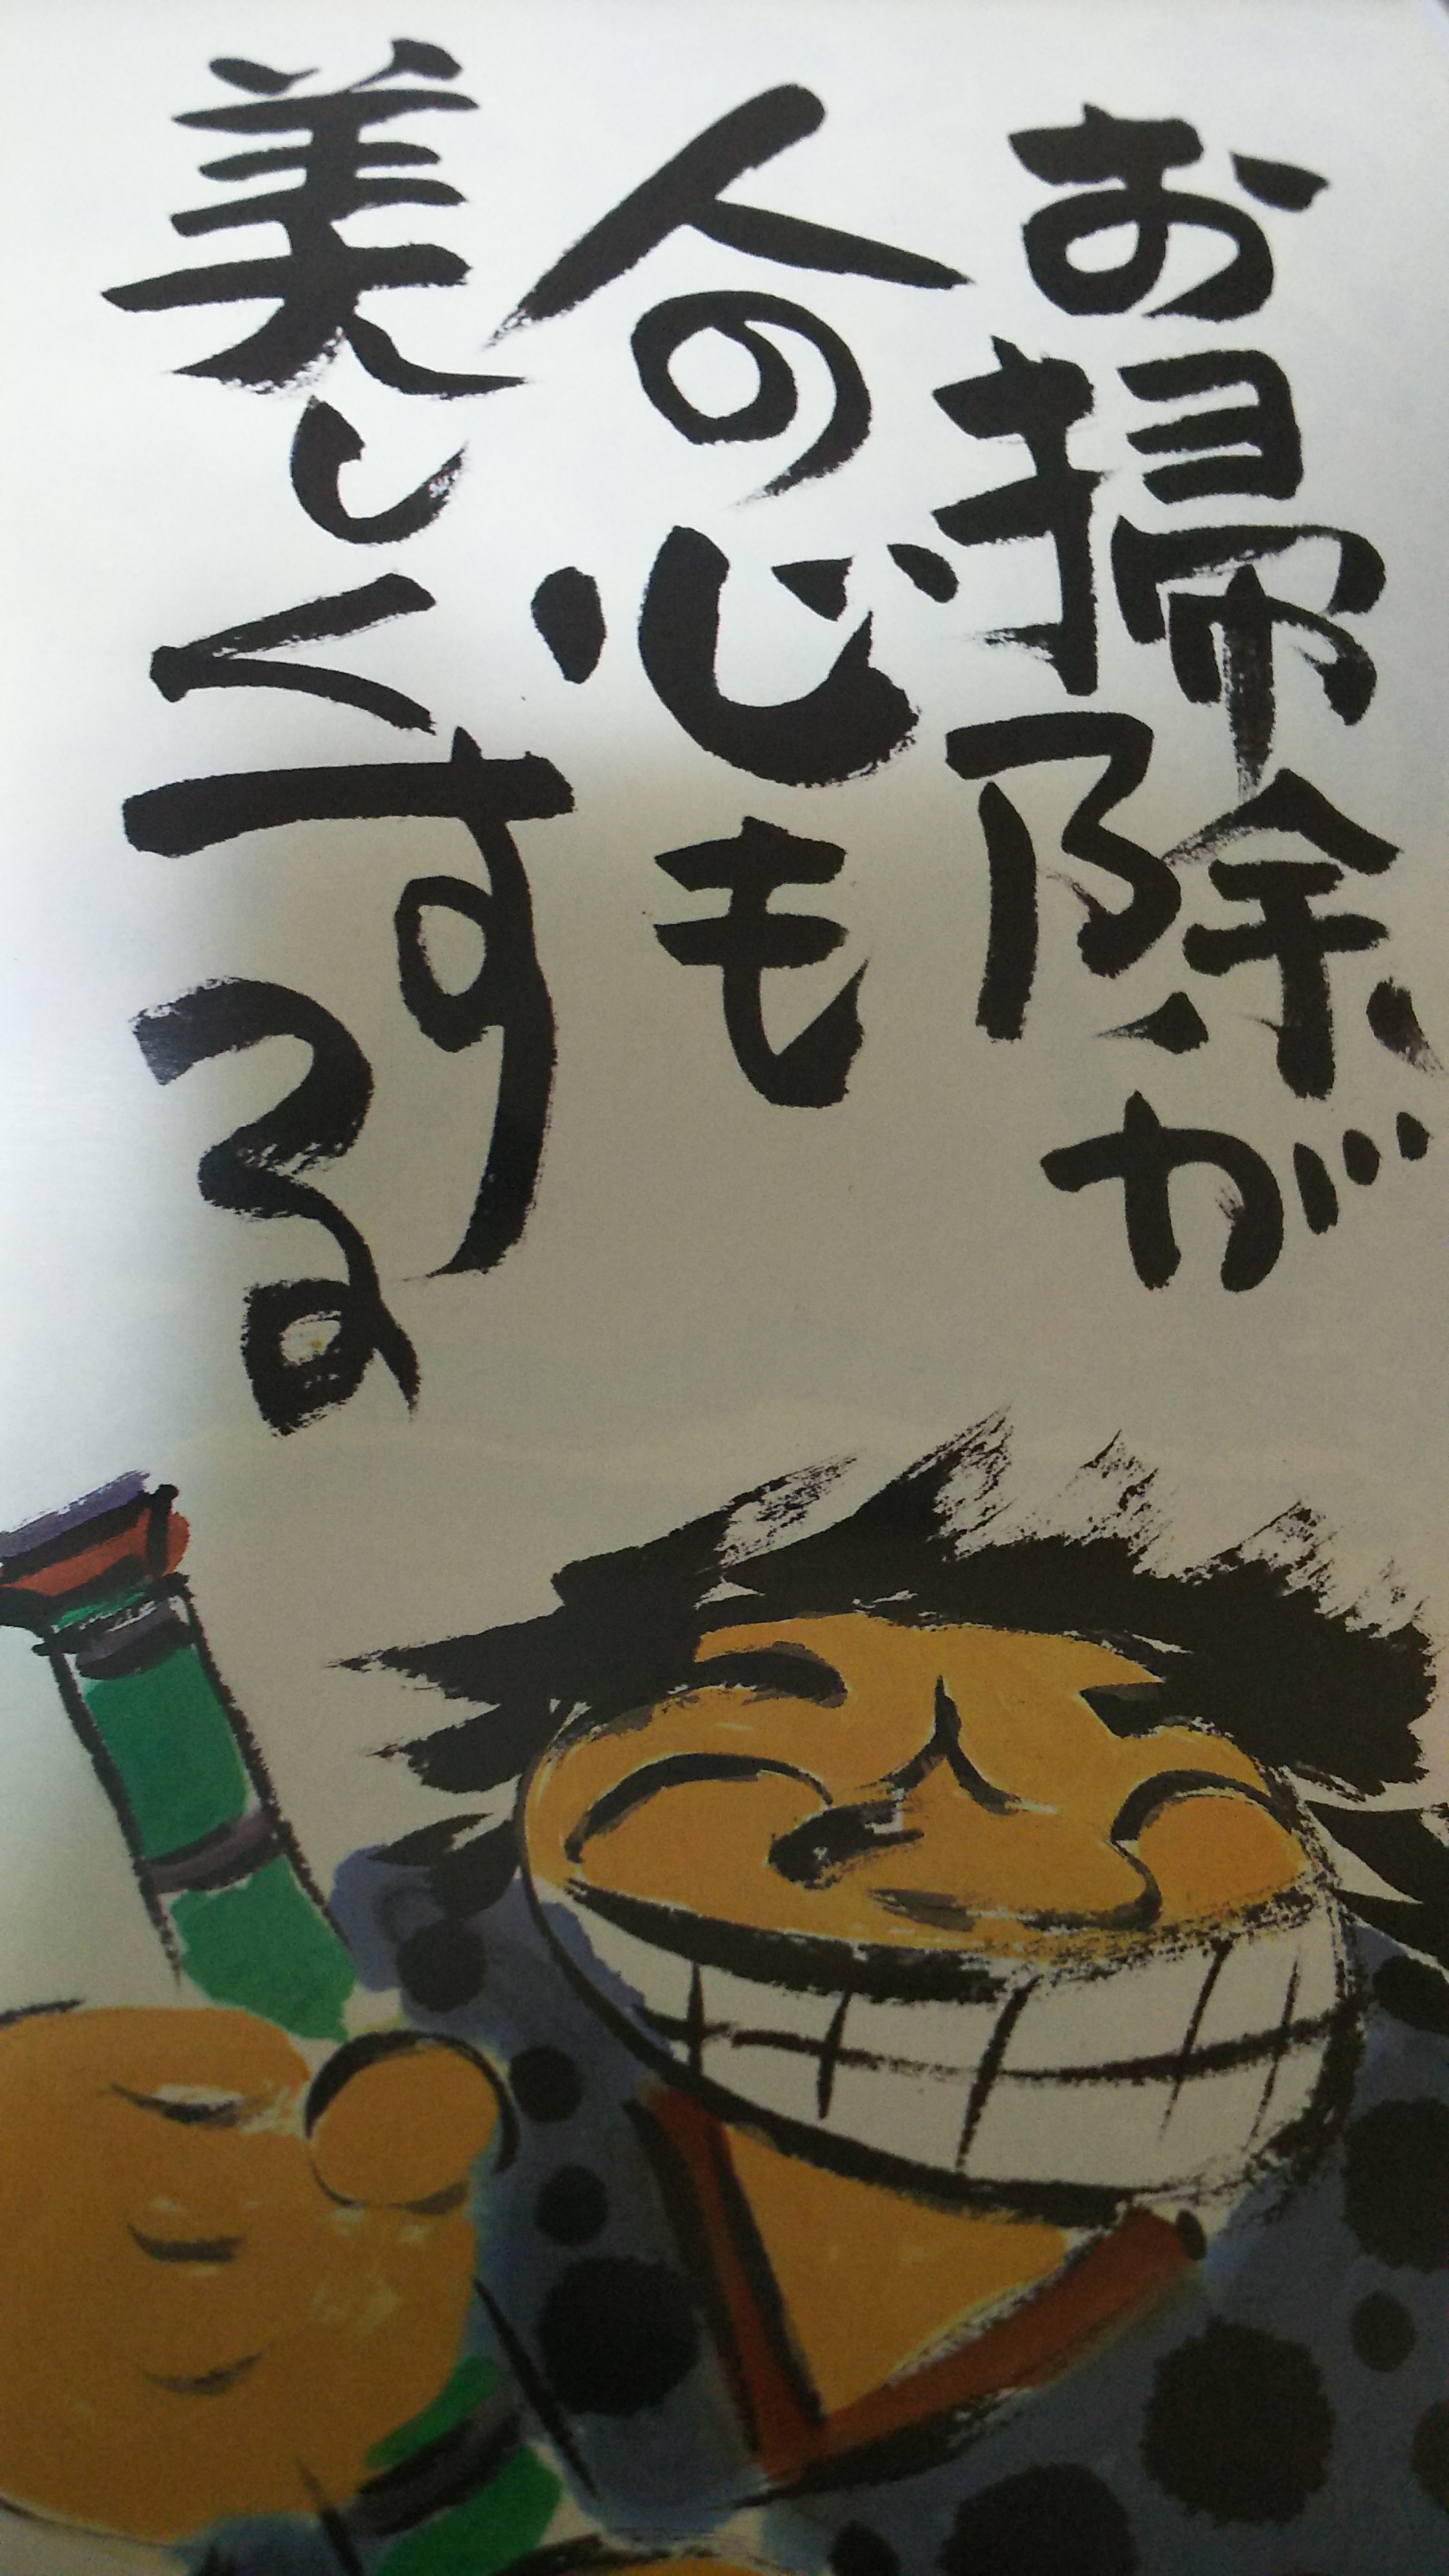 お掃除が
人の心も
美しくする